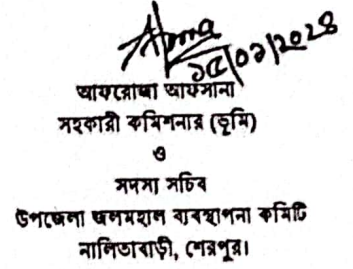 ১৫/০২/২০২৪
আফরোজা আফসানা
সহকারী কমিশনার (ভূমি)
ও
সদস্য সচিব
উপজেলা জলমহাল ব্যবস্থাপনা কমিটি
নালিতাবাড়ী, শেরপুর।